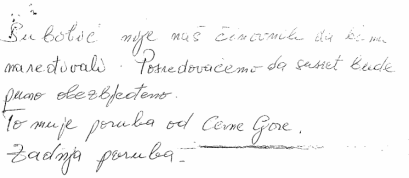 Šubotić nije naš činovnik da bi mu
naređivali. Posredovaćemo da susret bude
puno obezbjeđeno.
To mu je poruka od Crne Gore.
Zadnja poruka.